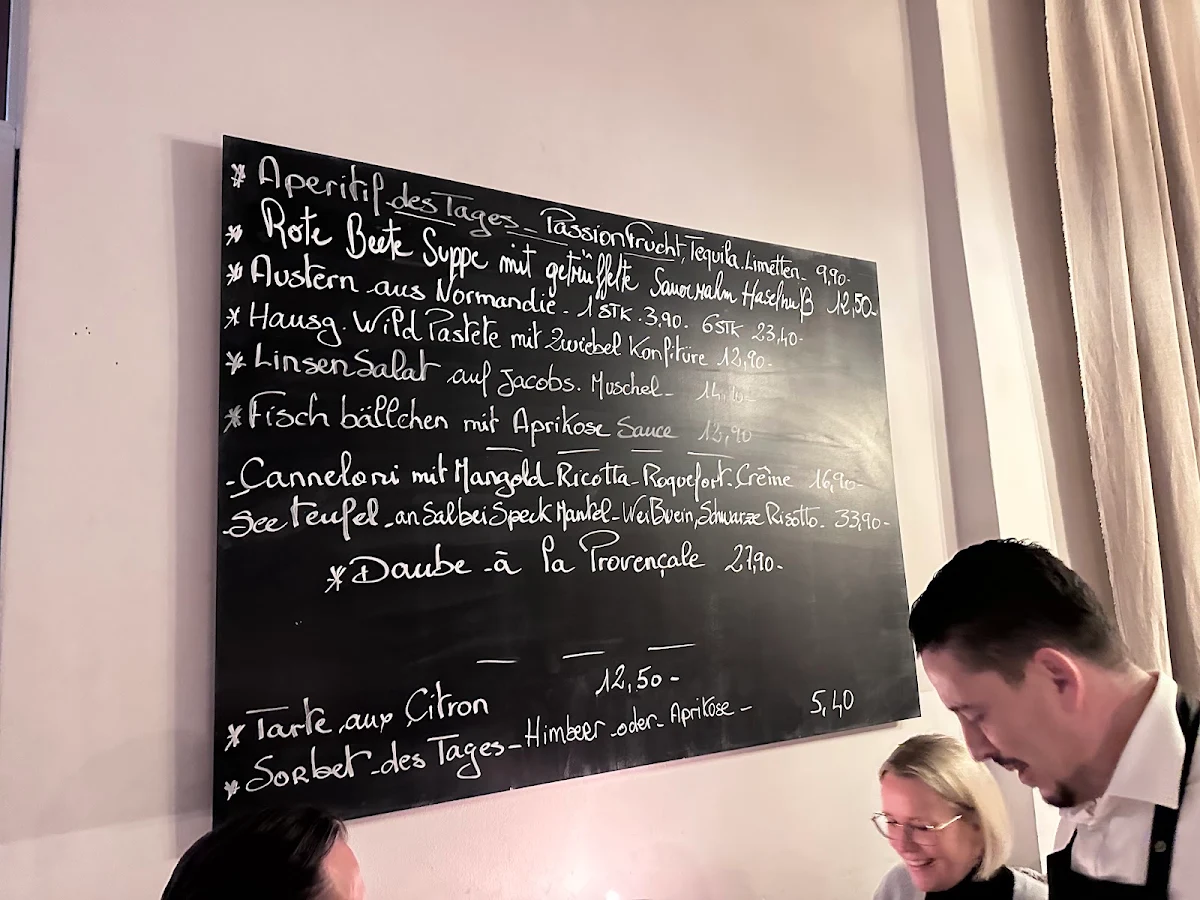 * Aperitif des Tages - Passionfrucht, Tequila. Limetten - 9,90-
* Rote Beete Suppe mit getrüffelte Sauerrahm Haselnuß 12,50-
* Austern aus Normandie - 1 STK . 3,90 . 6 STK 23,40-
* Hausg. Wild Pastete mit Zwiebel Konfitüre 12,90-
* Linsen Salat auf Jacobs. Muschel -
* Fisch bällchen mit Aprikose Sauce 13,90
- Canneloni mit Mangold Ricotta - Roquefort - Crême 16,90-
- See Teufel - an Salbei Speck Mantel - Weißwein, Schwarze Risotto - 33,90-
* Daube - à la Provençale 27,90-
* Tarte aux Citron 12,50-
* Sorbet - des Tages - Himbeer - oder - Aprikose - 5,40